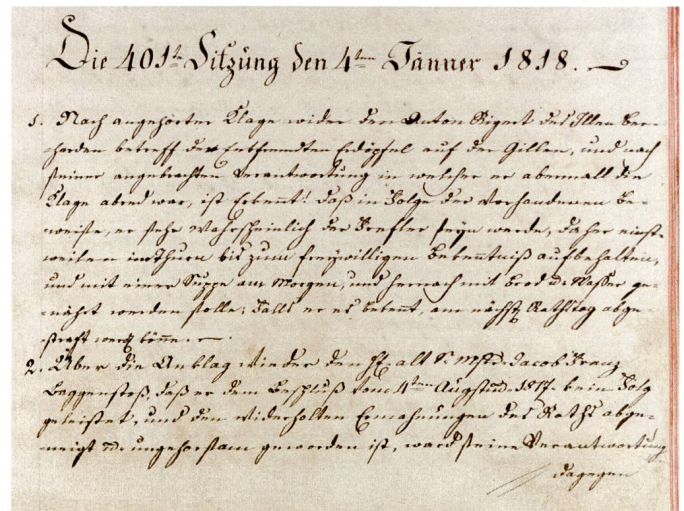 Die 401te Sitzung den 4ten Jänner 1818.
1. Nach angehörter Klage wider den Anton Sigert des Illen Ber-
horden betreff der entfremdten Erdäpfel auf der Gillen, und nach
seiner angebrachten Verantwortung in welcher er abermall die
Klage abred war, ist erkennt: daß in Folge der vorhandenen Be-
weise, er sehr wahrscheinlich der Frefler seyn werde, daher einst-
weilen im Thurn bis zum freywilligen Bekenntniß aufbehalten,
und mit einer Suppe am Morgen, und hernach mit Brod u. Waßer ge-
nährt werden solle; Falls er es bekennt, am nächst Rathstag abge-
straft werd könne.
2. Über die Anklag wieder den H. alt Jacob Franz
Baggenstoß, daß er dem Beschluß vom 4ten Augst 1817. kein Folg
geleistet, und den widerholten Ermahnungen des Raths abge-
neigt u. ungehorsam geworden ist, ward seine Verantwortung
dagegen